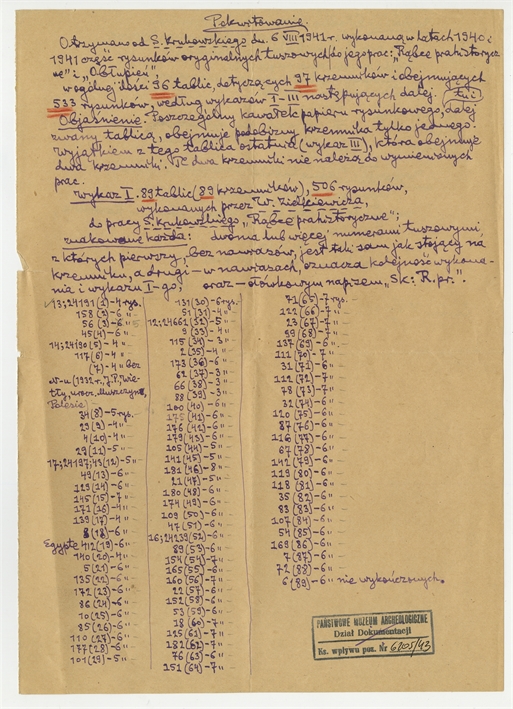 Pokwitowanie.
Otrzymano od S. Krukowskiego dn. 6 VIII 1941 r. wykonaną w latach 1940 i
1941 część rysunków oryginalnych tuszowych do jego prac: „Rąbcę prahistorycz
ne" i „Obłupień".
w ogólnej ilości 96 tablic, dotyczących 97 krzemieników i obejmujących
533 rysunków, według wykazów I–III następujących dalej.
Objaśnienie. Poszczególny kawałek papieru rysunkowego, dalej
zwany tablicą, obejmuje podobizny krzemienika tylko jednego.
Wyjątkiem z tego tablica ostatnia (wykaz III), która obejmuje
dwa krzemieniki. Te dwa krzemieniki nie należą do wymienionych
prac.
Wykaz I. 89 tablic (89 krzemieników), 506 rysunków,
wykonanych przez W. Zielkiewicza,
do pracy S. Krukowskiego „Rąbcę prahistoryczne";
znakowane każda: dwoma lub więcej numerami tuszowymi
z których pierwszy, bez nawiasów, jest taki sam jak stojący na
krzemieniku, a drugi – w nawiasach, oznacza kolejność wykona-
nia i wykazu I-go, oraz – ołówkowym napisem „Sk: R. pr.".
13;24191(1)-4 rys.
158(2)-6 "
56(3)-6 "
45(4)-6 "
14;24190(5)-4 "
117(6)-4 "
(7)-4 " bez
Polesie)
34(8)-5 rys.
23(9)-4 "
4(10)-4 "
29(11)-5 "
17;24197;43(12)-5 "
49(13)-6 "
129(14)-6 "
145(15)-7 "
171(16)-4 "
139(17)-4 "
8(18)-6 "
Egypte 412(19)-6 "
140(20)-4 "
5(21)-6 "
135(22)-6 "
172(23)-6 "
86(24)-6 "
70(25)-6 "
85(26)-6 "
110(27)-6 "
177(28)-6 "
101(29)-5 "
131(30)-6 rys.
51(31)-4 "
12;24661(32)-5 "
9(33)-4 "
115(34)-3 "
2(35)-4 "
173(36)-6 "
62(37)-3 "
66(38)-3 "
88(39)-3 "
100(40)-6 "
175(41)-6 "
176(42)-6 "
179(43)-6 "
105(44)-5 "
141(45)-5 "
181(46)-8 "
21(47)-5 "
180(48)-6 "
174(49)-6 "
109(50)-6 "
47(51)-6 "
16;24239(52)-6 "
89(53)-6 "
154(54)-7 "
165(55)-6 "
160(56)-7 "
22(57)-6 "
152(58)-6 "
53(59)-6 "
18(60)-7 "
125(61)-7 "
182(62)-7 "
76(63)-6 "
151(64)-7 "
71(65)-7 rys.
122(66)-7 "
23(67)-7 "
99(68)-7 "
137(69)-6 "
111(70)-7 "
31(71)-6 "
112(72)-7 "
78(73)-7 "
32(74)-6 "
120(75)-6 "
87(76)-6 "
116(77)-6 "
67(78)-6 "
142(79)-6 "
119(80)-6 "
118(81)-6 "
35(82)-6 "
83(83)-6 "
107(84)-6 "
54(85)-6 "
169(86)-6 "
7(87)-6 "
72(88)-6 "
6(89)-6 " nie wykończonych.
PAŃSTWOWE MUZEUM ARCHEOLOGICZNE
Dział Dokumentacji
Ks. wpływu poz. Nr 6205/43